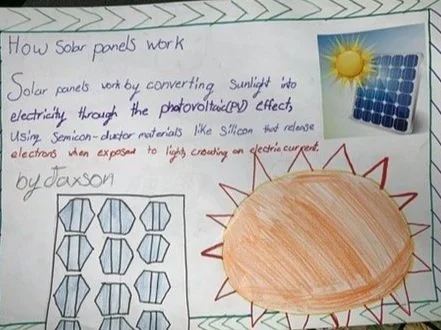 How Solar panels work
Solar panels work by converting Sunlight into
electricity through the photovoltaic(PV) effect,
Using Semicon-ductor materials like Silicon that release
electrons when exposed to light, creating an electric current.
by Jaxson